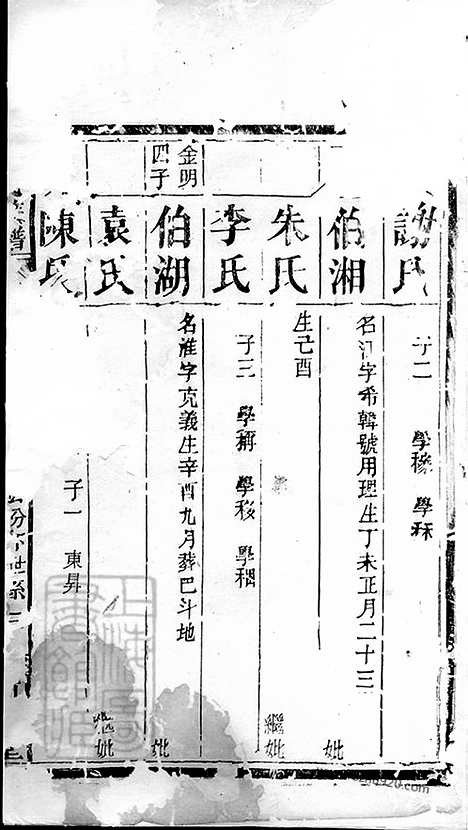 謝氏
子二 學穇
伯湘
名 字希韓號用理生丁未正月二十三
妣
朱氏
生己酉
繼妣
李氏
子三 學稱 學移 學稠
金明
四子
伯湖
名淮字克義生辛酉九月葬巴斗地
妣
袁氏
繼妣
陳氏
子一 東昇
族譜
上海圖
書館藏